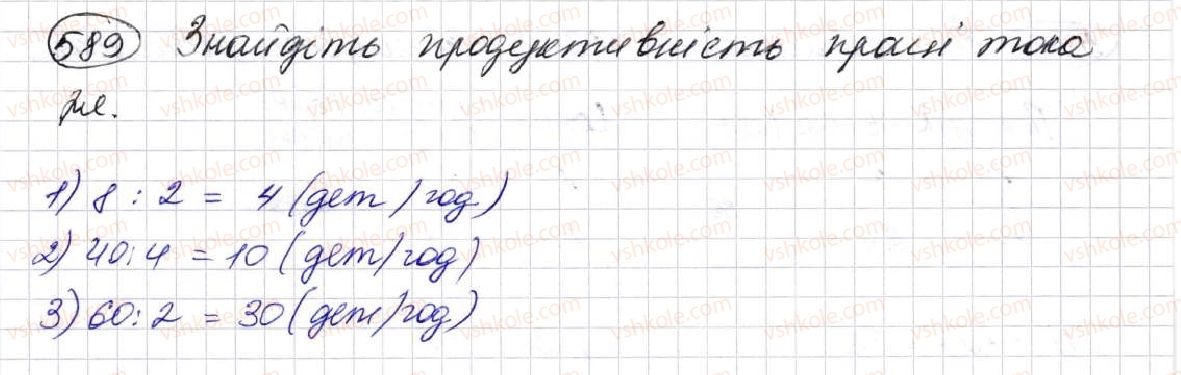 589 Знайдіть продуктивність праці тока
ря.
1) 8 : 2 = 4 (дет/год)
2) 40 : 4 = 10 (дет/год)
3) 60 : 2 = 30 (дет/год)